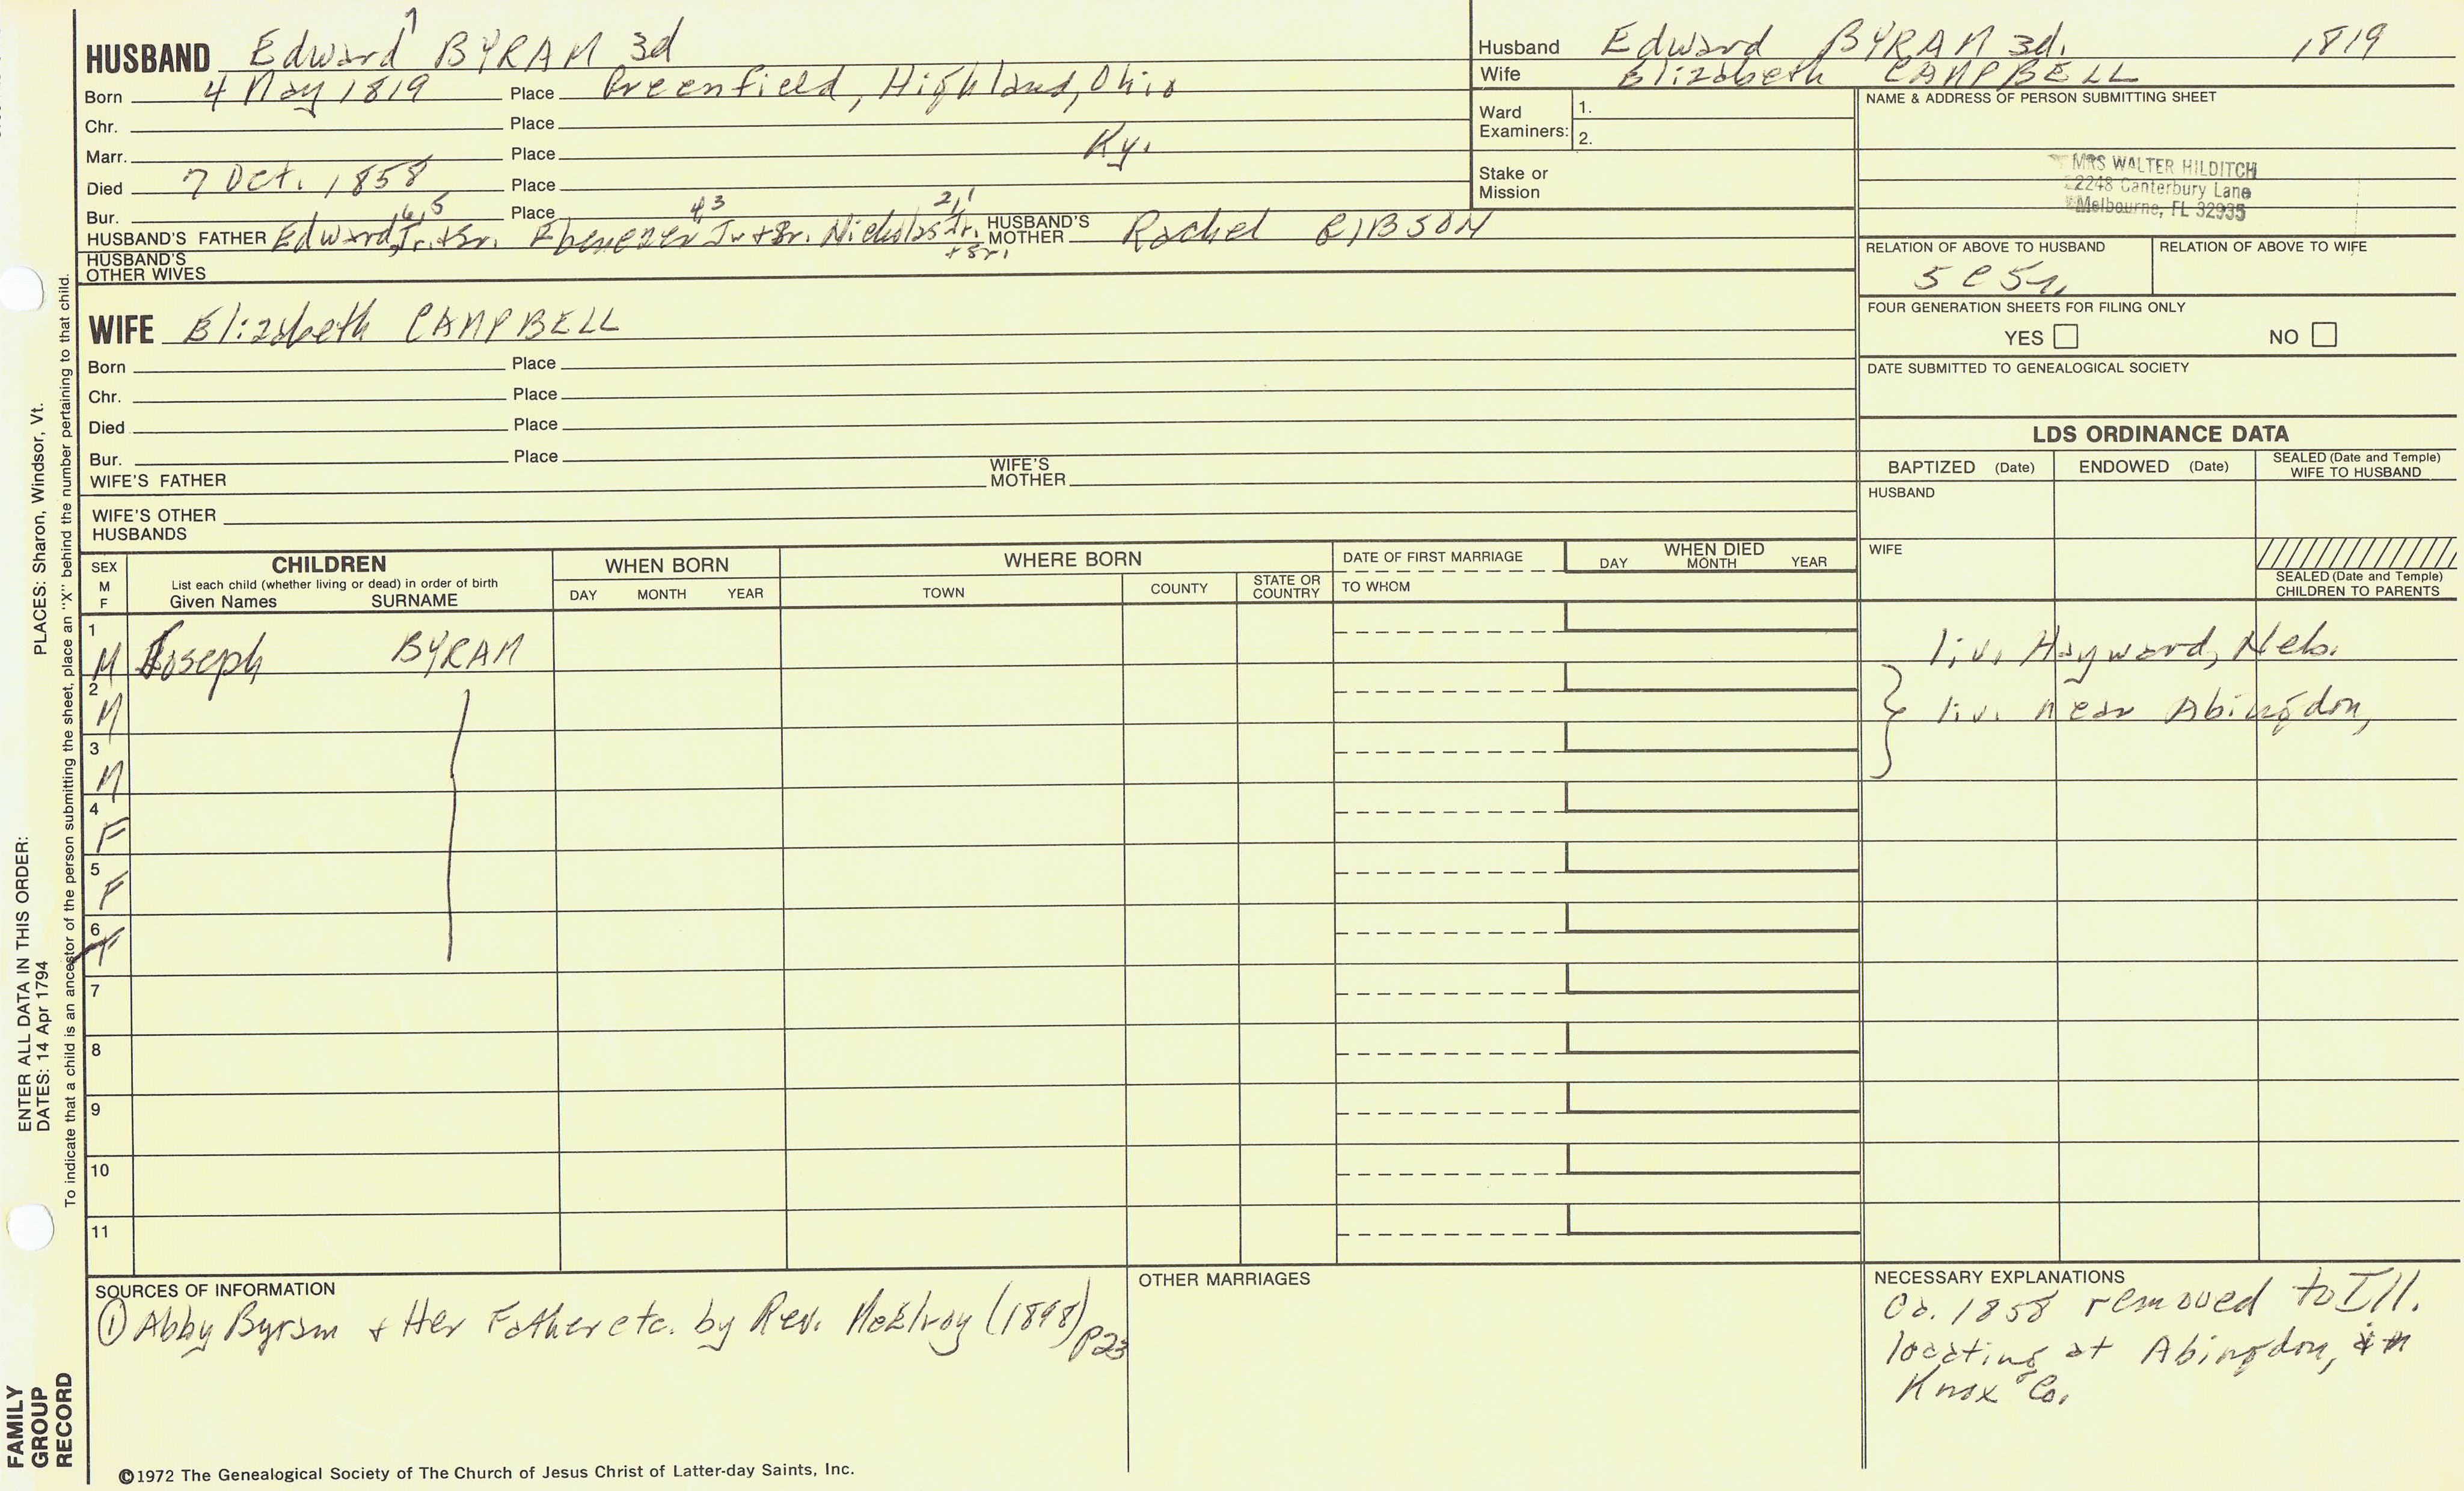 HUSBAND Edward 7 BYRAM 3d
Born 4 May 1819 Place Greenfield, Highland, Ohio
Chr. Place
Marr. Place Ky.
Died 7 Oct. 1858 Place
Bur. Place
HUSBAND'S FATHER Edward Jr. + Sr. 6,5 Ebenezer Jr + Sr. 4,3 Nicholas Jr. + Sr. 2,1 HUSBAND'S MOTHER Rachel GIBSON
HUSBAND'S OTHER WIVES
WIFE Elizabeth CAMPBELL
Born Place
Chr. Place
Died Place
Bur. Place
WIFE'S FATHER WIFE'S MOTHER
WIFE'S OTHER HUSBANDS
Husband Edward BYRAM 3d. 1819
Wife Elizabeth CAMPBELL
Ward Examiners: 1.
2.
Stake or Mission
NAME & ADDRESS OF PERSON SUBMITTING SHEET
MRS WALTER HILDITCH
2248 Canterbury Lane
Melbourne, FL 32935
RELATION OF ABOVE TO HUSBAND RELATION OF ABOVE TO WIFE
5 C 5r.
FOUR GENERATION SHEETS FOR FILING ONLY
YES NO
DATE SUBMITTED TO GENEALOGICAL SOCIETY
LDS ORDINANCE DATA
BAPTIZED (Date) ENDOWED (Date) SEALED (Date and Temple) WIFE TO HUSBAND
HUSBAND
WIFE
SEALED (Date and Temple) CHILDREN TO PARENTS
SEX M F
CHILDREN
List each child (whether living or dead) in order of birth
Given Names SURNAME
WHEN BORN
DAY MONTH YEAR
WHERE BORN
TOWN COUNTY STATE OR COUNTRY
DATE OF FIRST MARRIAGE
TO WHOM
WHEN DIED
DAY MONTH YEAR
1 M Joseph BYRAM liv. Hayward, Neb.
2 M liv. near Abingdon,
3 M
4 F
5 F
6 F
7
8
9
10
11
SOURCES OF INFORMATION
① Abby Byram + Her Father etc. by Rev. McElroy (1898) p23
OTHER MARRIAGES
NECESSARY EXPLANATIONS
Ca. 1858 removed to Ill.
locating at Abingdon, in
Knox Co.
©1972 The Genealogical Society of The Church of Jesus Christ of Latter-day Saints, Inc.
ENTER ALL DATA IN THIS ORDER:
DATES: 14 Apr 1794 PLACES: Sharon, Windsor, Vt.
To indicate that a child is an ancestor of the person submitting the sheet, place an "X" behind the number pertaining to that child.
FAMILY
GROUP
RECORD